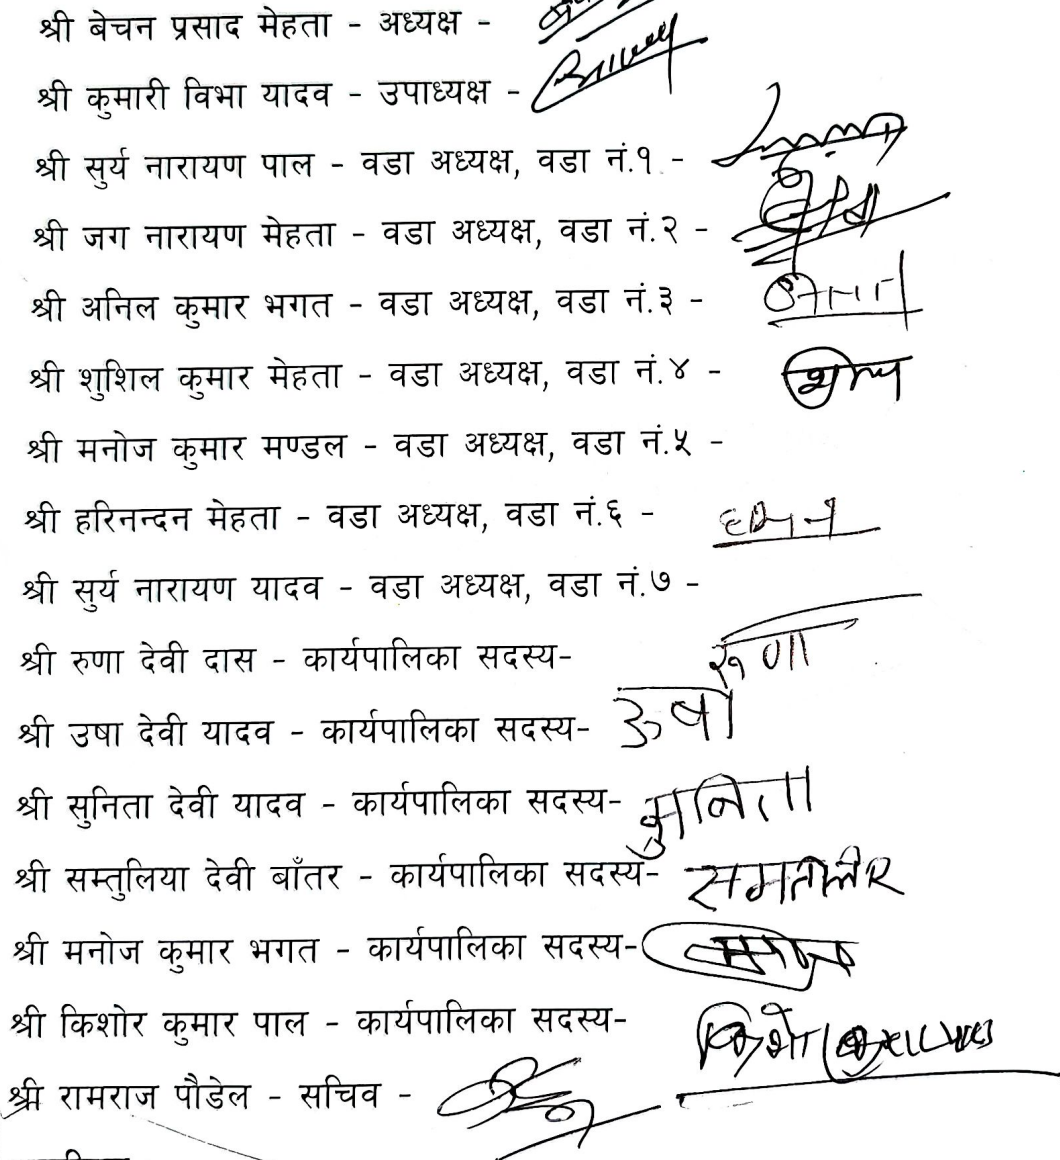 श्री बेचन प्रसाद मेहता - अध्यक्ष -
श्री कुमारी विभा यादव - उपाध्यक्ष -
श्री सुर्य नारायण पाल - वडा अध्यक्ष, वडा नं.१ -
श्री जग नारायण मेहता - वडा अध्यक्ष, वडा नं.२ -
श्री अनिल कुमार भगत - वडा अध्यक्ष, वडा नं.३ -
श्री शुशिल कुमार मेहता - वडा अध्यक्ष, वडा नं.४ -
श्री मनोज कुमार मण्डल - वडा अध्यक्ष, वडा नं.५ -
श्री हरिनन्दन मेहता - वडा अध्यक्ष, वडा नं.६ -
श्री सुर्य नारायण यादव - वडा अध्यक्ष, वडा नं.७ -
श्री रुणा देवी दास - कार्यपालिका सदस्य- रुणा
श्री उषा देवी यादव - कार्यपालिका सदस्य- उषा
श्री सुनिता देवी यादव - कार्यपालिका सदस्य- सुनिता
श्री सम्तुलिया देवी बाँतर - कार्यपालिका सदस्य-
श्री मनोज कुमार भगत - कार्यपालिका सदस्य-
श्री किशोर कुमार पाल - कार्यपालिका सदस्य-
श्री रामराज पौडेल - सचिव -